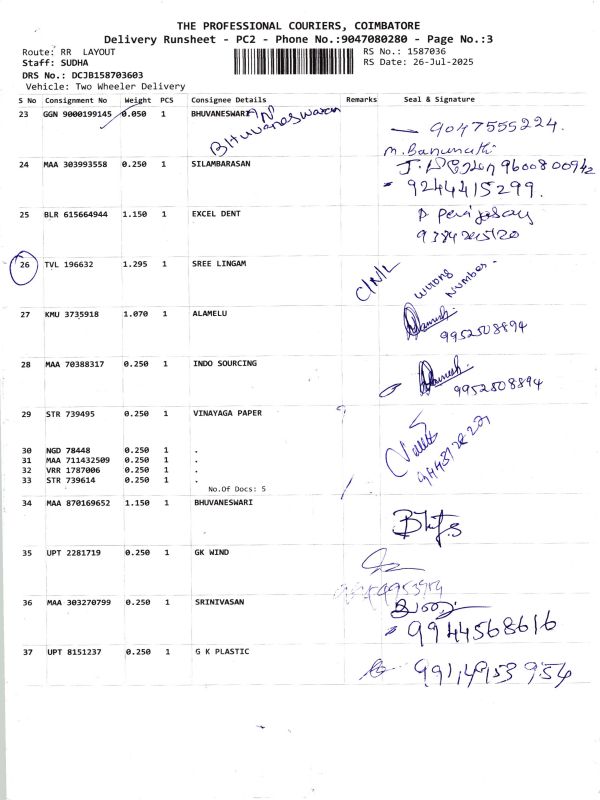 THE PROFESSIONAL COURIERS, COIMBATORE
Delivery Runsheet - PC2 - Phone No.:9047080280 - Page No.:3
Route: RR LAYOUT RS No.: 1587036
Staff: SUDHA RS Date: 26-Jul-2025
DRS No.: DCJB158703603
Vehicle: Two Wheeler Delivery
S No Consignment No Weight PCS Consignee Details Remarks Seal & Signature
23 GGN 9000199145 0.050 1 BHUVANESWARI
Bhuvaneswaran
9047555224.
24 MAA 303993558 0.250 1 SILAMBARASAN
9600800942
9244415299.
25 BLR 615664944 1.150 1 EXCEL DENT
26 TVL 196632 1.295 1 SREE LINGAM C/N/L wrong number
27 KMU 3735918 1.070 1 ALAMELU
9952508894
28 MAA 70388317 0.250 1 INDO SOURCING
9952508894
29 STR 739495 0.250 1 VINAYAGA PAPER
30 NGD 78448 0.250 1 .
31 MAA 711432509 0.250 1 .
32 VRR 1787006 0.250 1 .
33 STR 739614 0.250 1 .
No.Of Docs: 5
34 MAA 870169652 1.150 1 BHUVANESWARI
35 UPT 2281719 0.250 1 GK WIND
36 MAA 303270799 0.250 1 SRINIVASAN
9944568616
37 UPT 8151237 0.250 1 G K PLASTIC